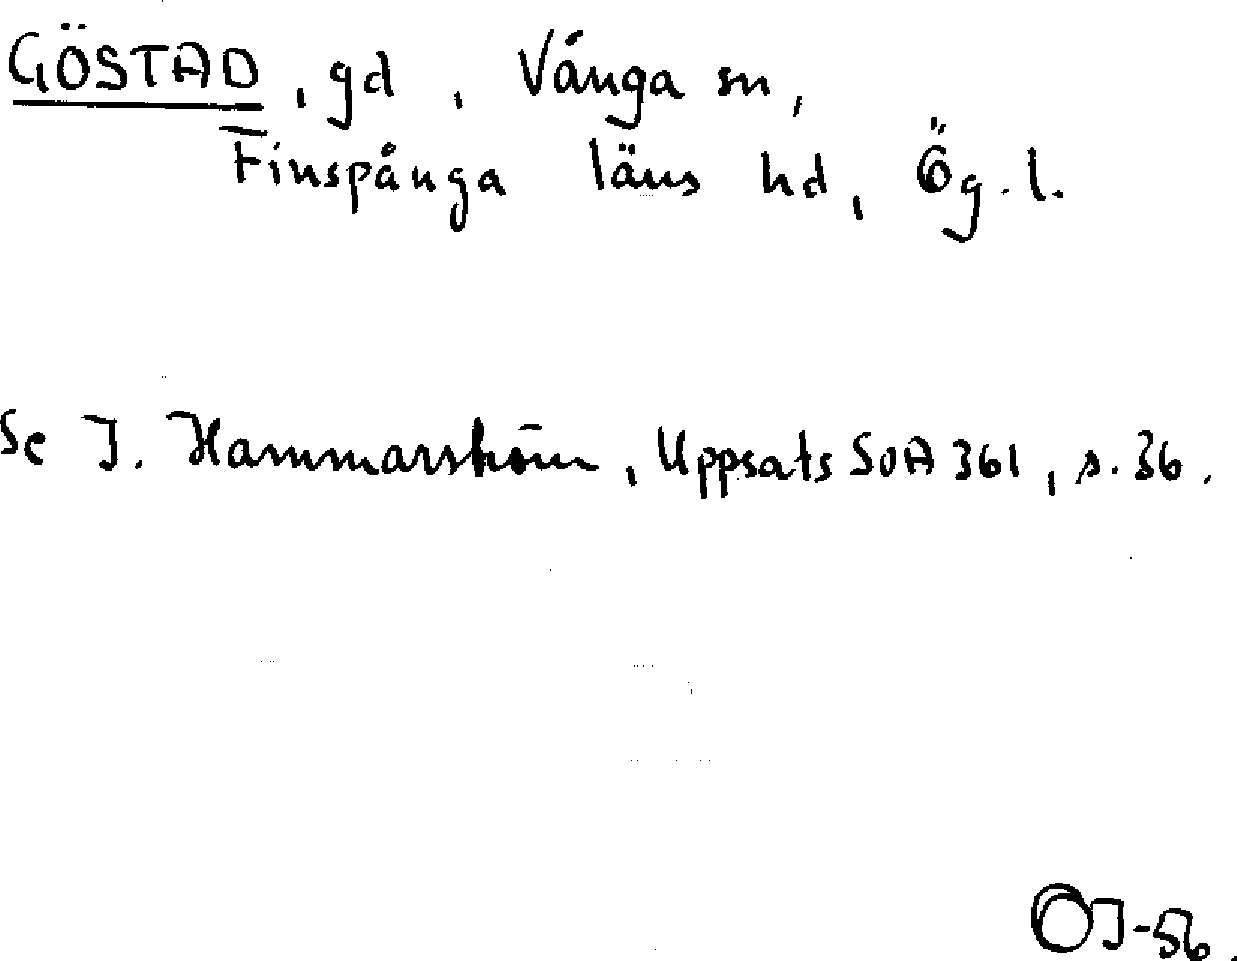 GÖSTAD, gd, Vånga sn,
Finspånga läns hd, Ög.l.
Se I. Hammarström, Uppsats SOA 361, s. 36.
OJ-56.